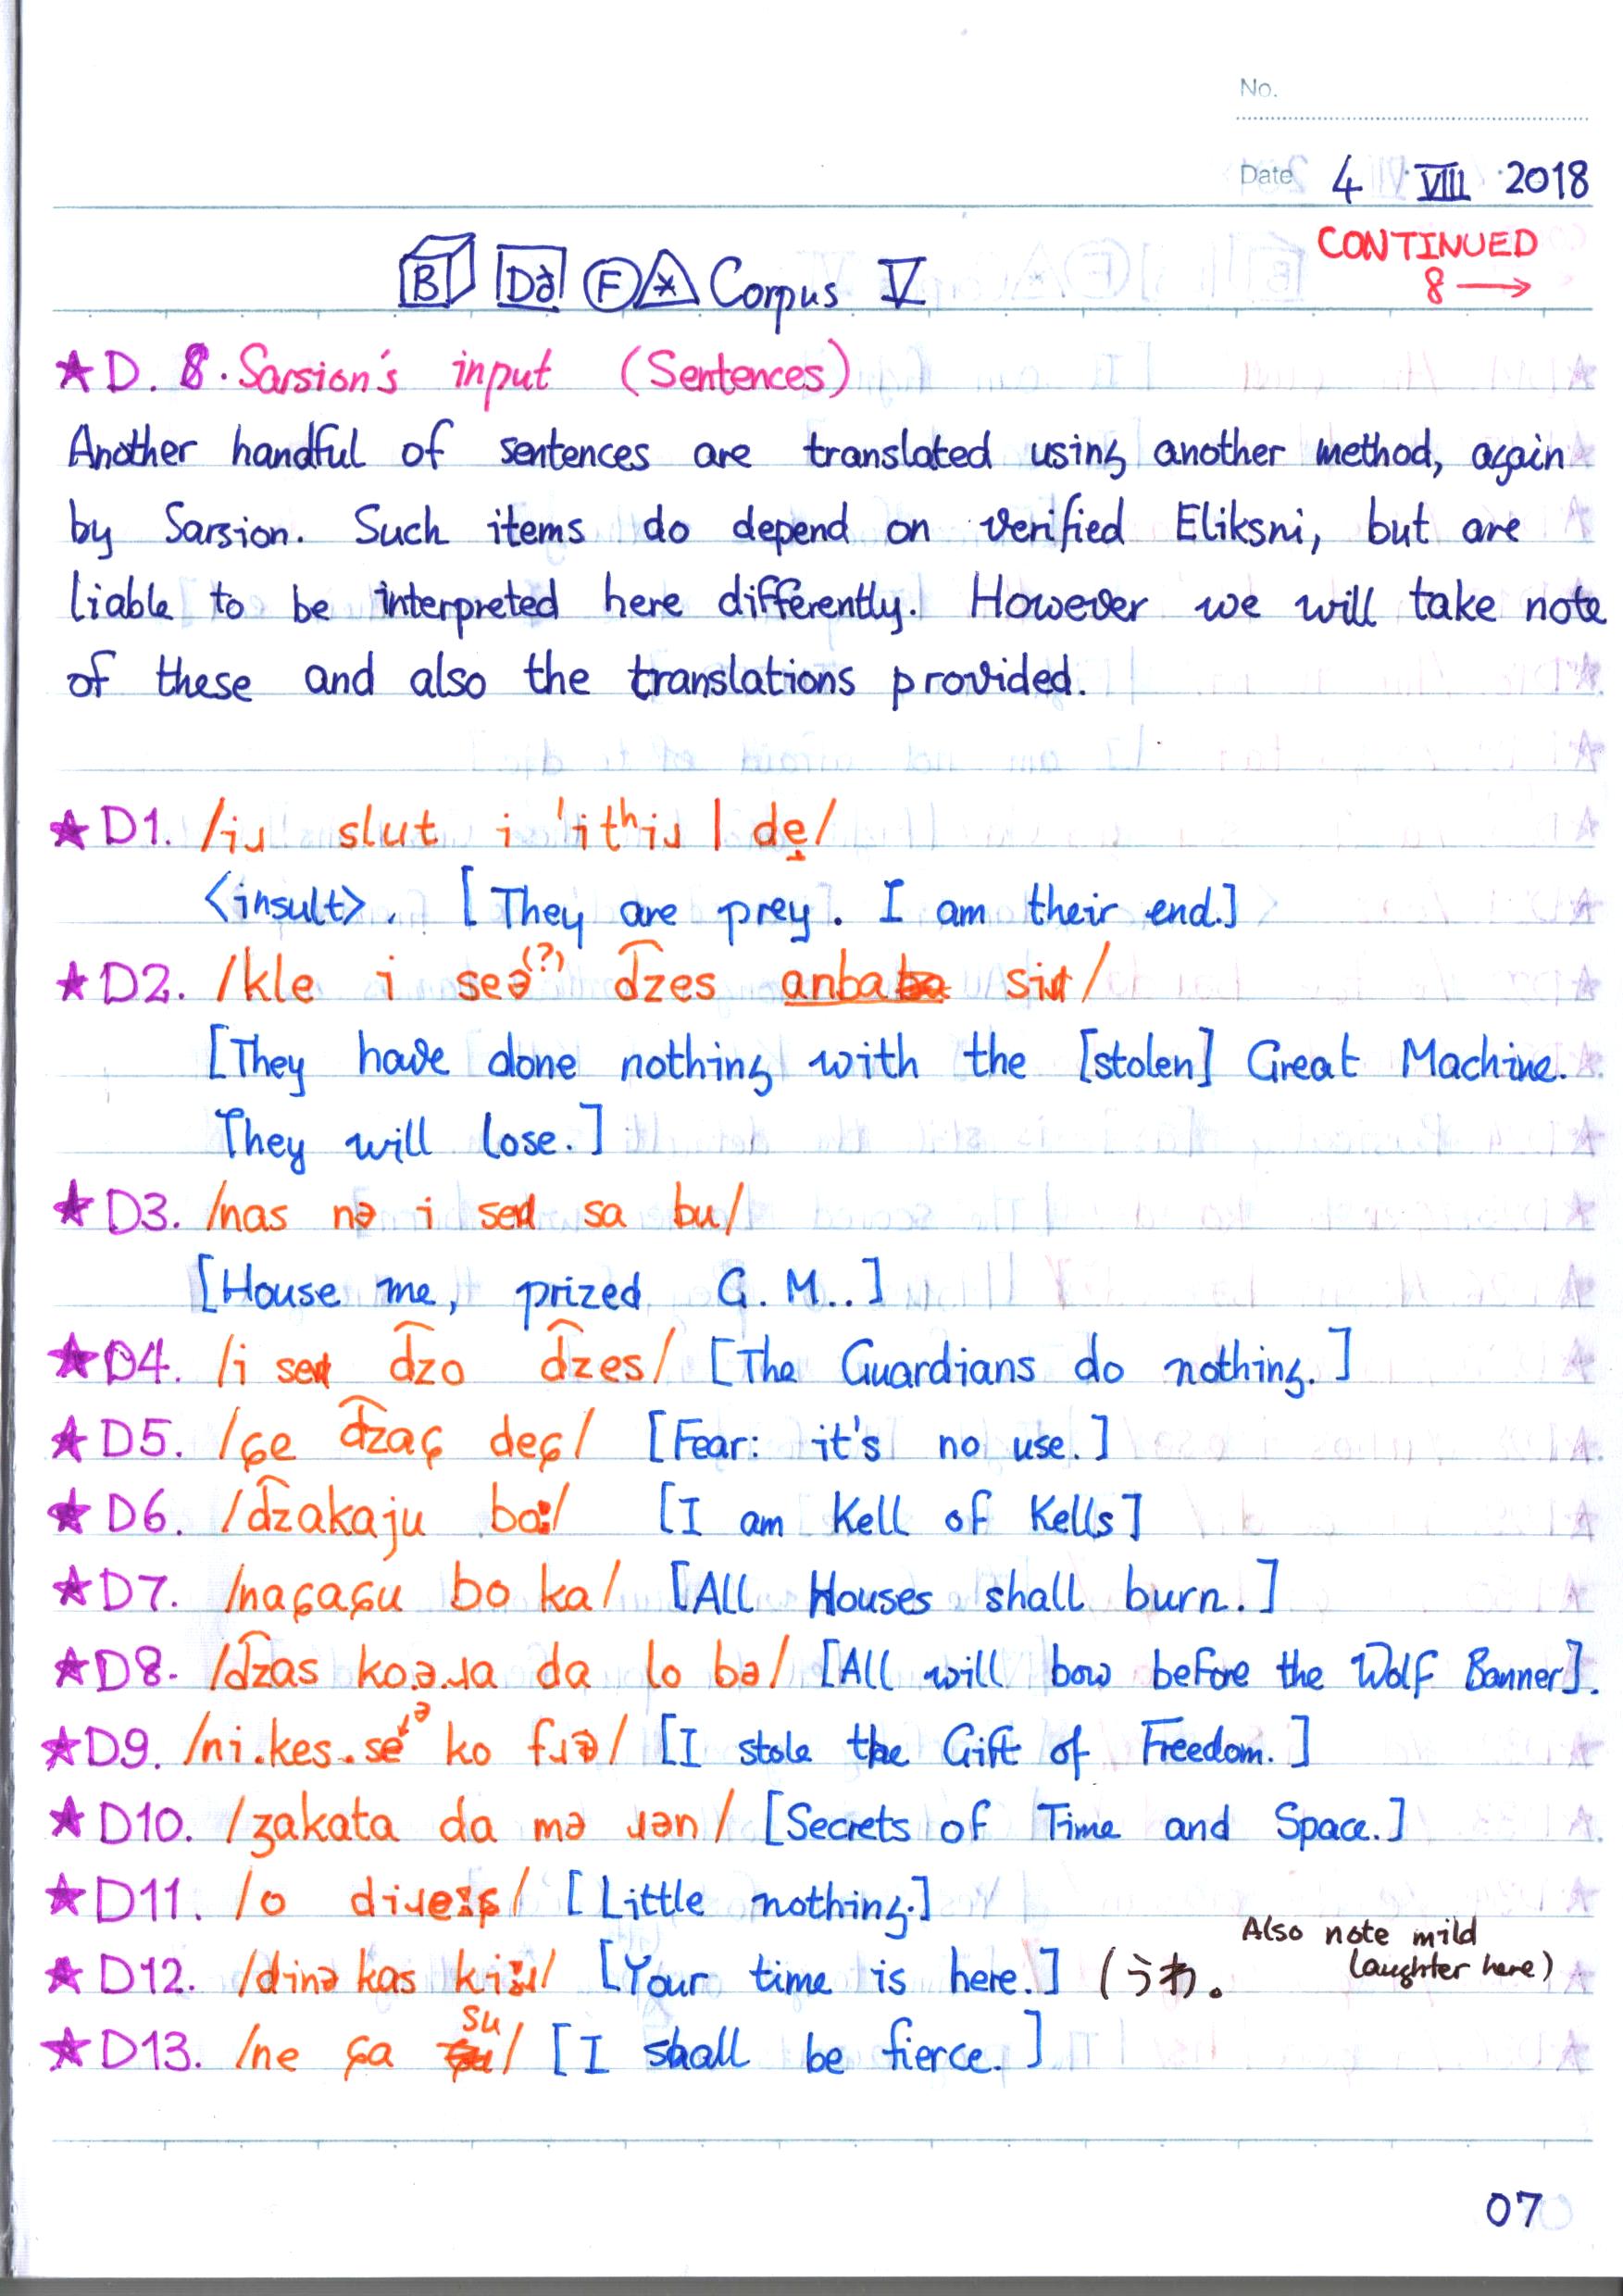 No.
Date 4 VIII 2018
CONTINUED
8 →
B Də F * Corpus V
★D. 8. Sarsion's input (Sentences)
Another handful of sentences are translated using another method, again
by Sarsion. Such items do depend on verified Eliksni, but are
liable to be interpreted here differently. However we will take note
of these and also the translations provided.
★D1. /iɹ slut i ˈitʰiɹ | de̞/
<insult>. [They are prey. I am their end.]
★D2. /kle i seə(?) d͡zes anba siɹ/
[They have done nothing with the [stolen] Great Machine.
They will lose.]
★D3. /nas nə i seɹ sa bu/
[House me, prized G. M..]
★D4. /i seɹ d͡zo d͡zes/ [The Guardians do nothing.]
★D5. /çe d͡zaç deç/ [Fear: it's no use.]
★D6. /d͡zakaju bo:/ [I am Kell of Kells]
★D7. /naçaçu bo ka/ [All Houses shall burn.]
★D8. /d͡zas ko.ə.ɹa da lo bə/ [All will bow before the Wolf Banner].
★D9. /ni.kes.se ə ko fɹə/ [I stole the Gift of Freedom.]
★D10. /ʒakata da mə ɹən/ [Secrets of Time and Space.]
★D11. /o diɹe:ç/ [Little nothing.]
★D12. /dinə kas ki:ɹ/ [Your time is here.] (うわ。 Also note mild
laughter here)
★D13. /ne ça su/ [I shall be fierce.]
07